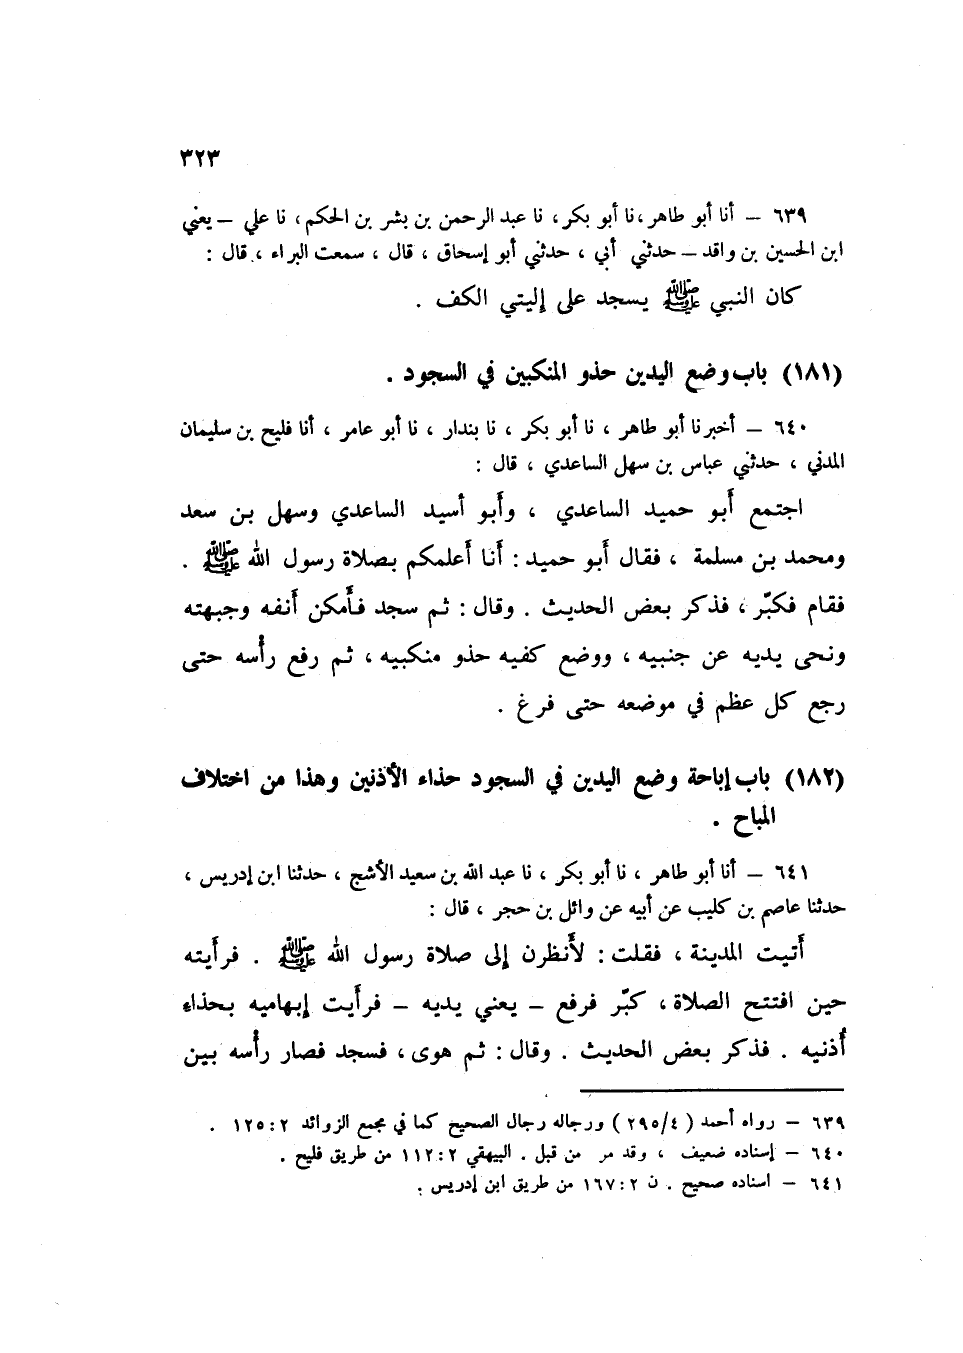 ٣٢٣
٦٣٩ – أنا أبو طاهر، نا أبو بكر، نا عبد الرحمن بن بشر بن الحكم، نا علي – يعني
ابن الحسين بن واقد – حدثني أبي ، حدثني أبو إسحاق ، قال ، سمعت البراء ، قال :
كان النبي ﷺ يسجد على إليتي الكف .
(١٨١) باب وضع اليدين حذو المنكبين في السجود .
٦٤٠ – أخبرنا أبو طاهر ، نا أبو بكر ، نا بندار ، نا أبو عامر ، أنا فليح بن سليمان
المدني ، حدثني عباس بن سهل الساعدي ، قال :
اجتمع أبو حميد الساعدي ، وأبو أسيد الساعدي وسهل بن سعد
ومحمد بن مسلمة ، فقال أبو حميد : أنا أعلمكم بصلاة رسول الله ﷺ .
فقام فكبّر ، فذكر بعض الحديث . وقال : ثم سجد فأمكن أنفه وجبهته
ونحى يديه عن جنبيه ، ووضع كفيه حذو منكبيه ، ثم رفع رأسه حتى
رجع كل عظم في موضعه حتى فرغ .
(١٨٢) باب إباحة وضع اليدين في السجود حذاء الأذنين وهذا من اختلاف
المباح .
٦٤١ – أنا أبو طاهر ، نا أبو بكر ، نا عبد الله بن سعيد الأشج ، حدثنا ابن إدريس ،
حدثنا عاصم بن كليب عن أبيه عن وائل بن حجر ، قال :
أتيت المدينة ، فقلت : لأنظرن إلى صلاة رسول الله ﷺ . فرأيته
حين افتتح الصلاة ، كبّر فرفع – يعني يديه – فرأيت إبهاميه بحذاء
أذنيه . فذكر بعض الحديث . وقال : ثم هوى ، فسجد فصار رأسه بين
٦٣٩ – رواه أحمد ( ٢٩٥/٤ ) ورجاله رجال الصحيح كما في مجمع الزوائد ١٢٥:٢ .
٦٤٠ – إسناده ضعيف ، وقد مر من قبل . البيهقي ١١٢:٢ من طريق فليح .
٦٤١ – اسناده صحيح . ن ١٦٧:٢ من طريق ابن إدريس .